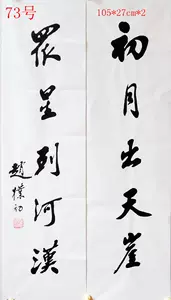 73号
105*27cm*2
初月出天崖
眾星列河漢
趙樸初